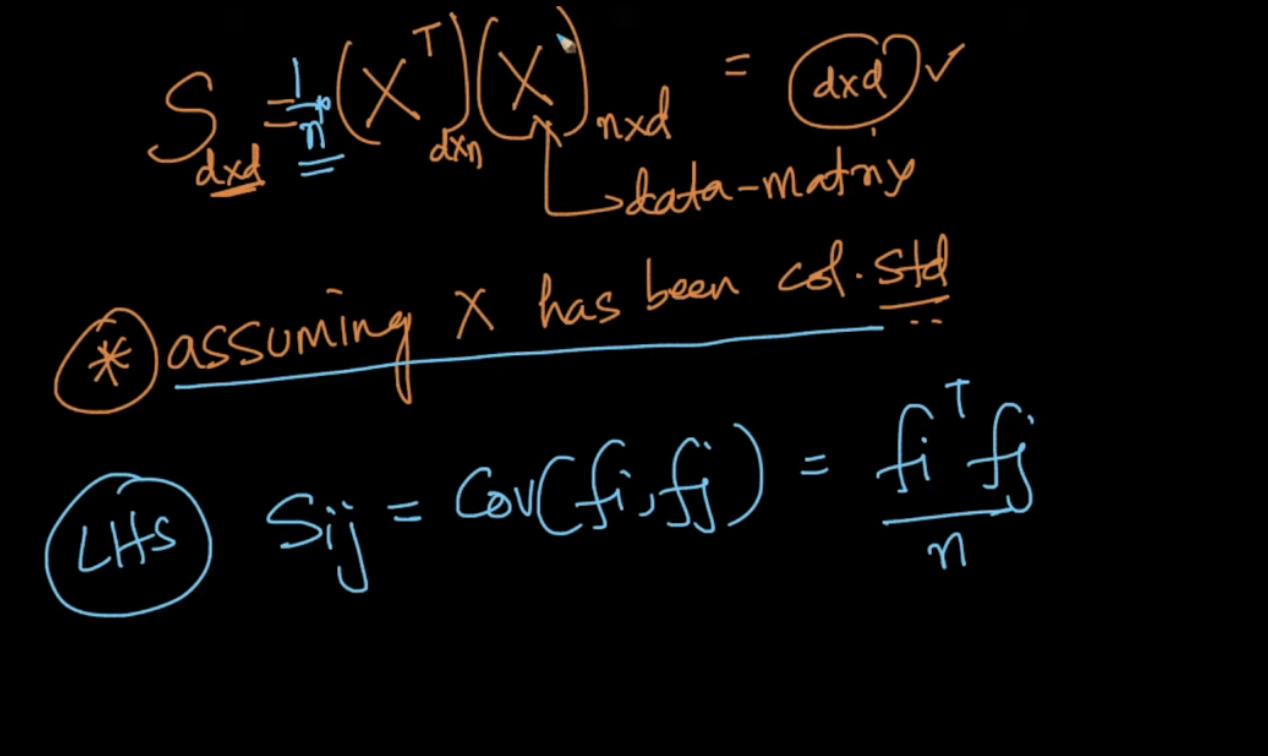 S dxd = 1/n (X^T) dxn (X) nxd = dxd ✓
data-matrix
* assuming X has been col. std
LHS Sij = Cov(fi, fj) = fi^T fj / n